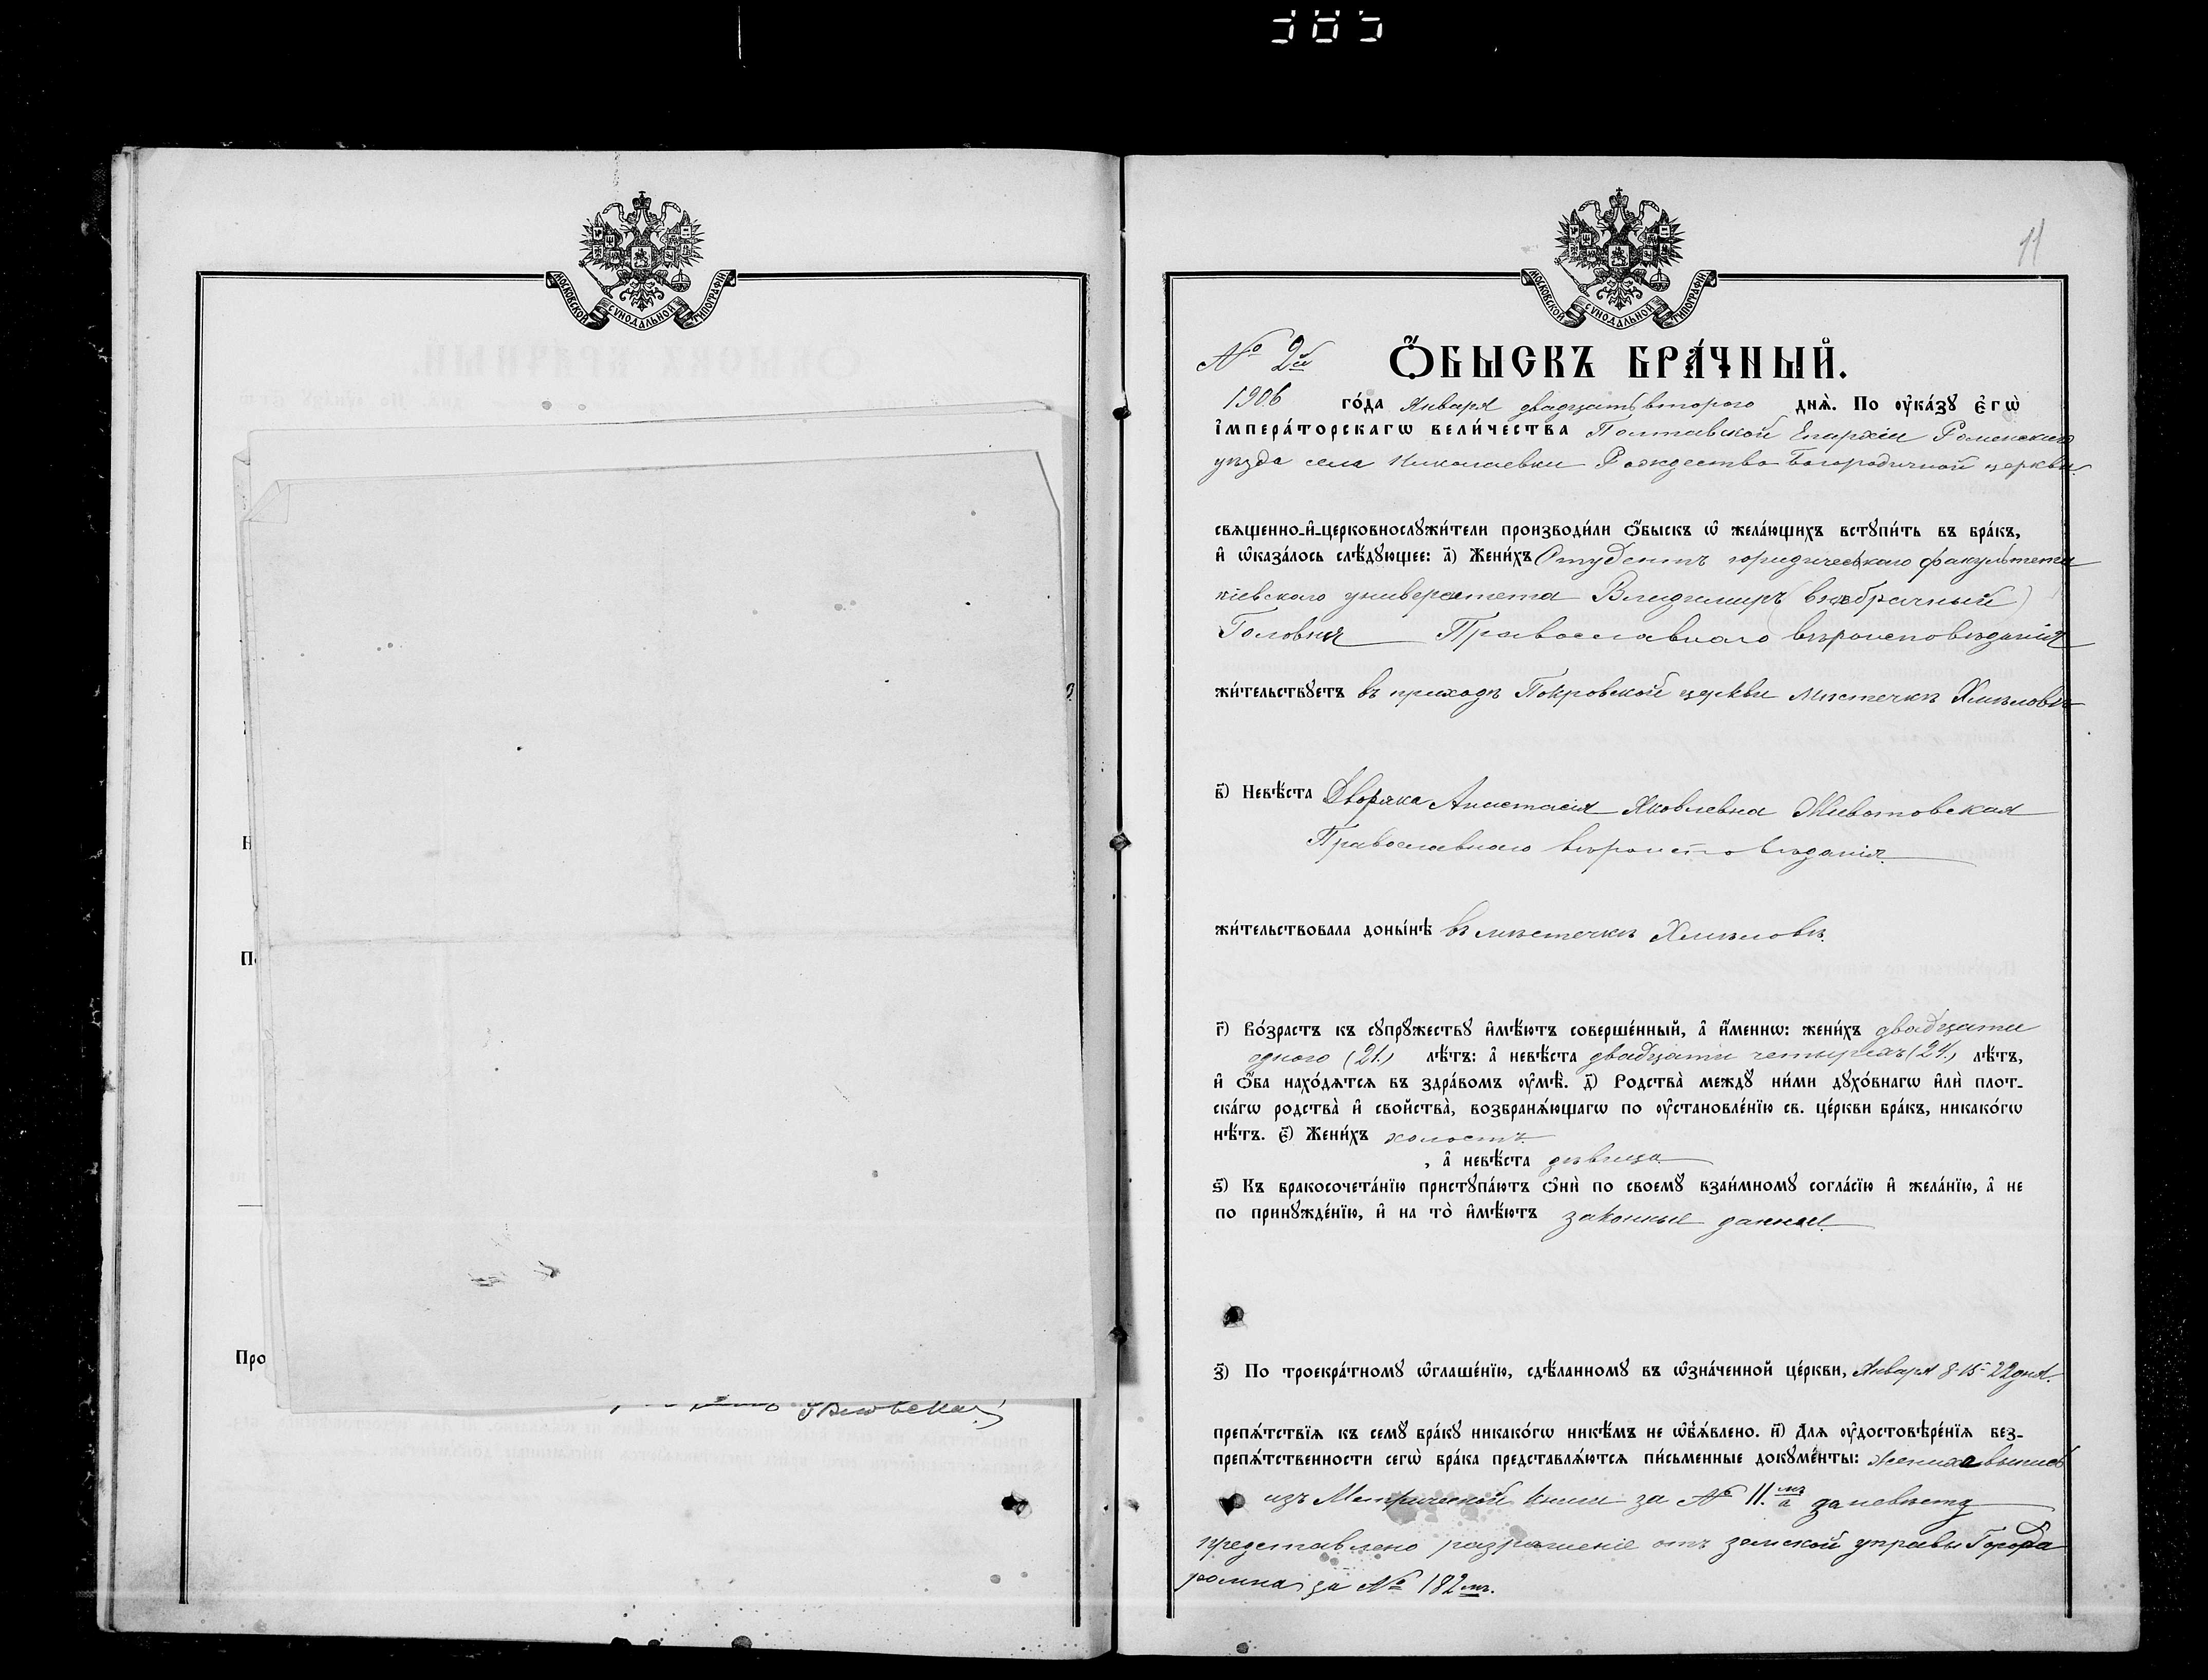 МОСКОВСКОЙ СѴНОДАЛЬНОЙ ТИПОГРАФІИ
Н
П
Про
МОСКОВСКОЙ СѴНОДАЛЬНОЙ ТИПОГРАФІИ
11
№ 2й
Ѻ҆БЫСКЪ БРА́ЧНЫЙ.
1906 го́да Января двадцать второго дня̀. По ᲂу҆ка́зꙋ є҆гѡ̀
і҆мпера́торскагѡ вели́чества Полтавской Епархіи Роменскаго
уѣзда села Николаевки Рождество Богородичной церкви.
свѧщенно-и҆-церковнослꙋжи́тели производи́ли ѻ҆́быскъ ѡ҆ жела́ющихъ встꙋпи́ть въ бра́къ,
и҆ ѡ҆каза́лось слѣ́дꙋющее: а҃) Жени́хъ Студентъ юридическаго факультета
кіевскаго университета Владимиръ (внѣбрачный)
Головня Православнаго вѣроисповѣданія
жи́тельствꙋетъ въ приходѣ Покровской церкви мѣстечкѣ Хмѣловѣ
в҃) Невѣ́ста Дворянка Анастасія Яковлевна Животовская
Православнаго вѣроисповѣданія.
жи́тельствовала доны́нѣ въ мѣстечкѣ Хмѣловѣ.
г҃) Во́зрастъ къ сꙋпрꙋжествꙋ и҆мѣ́ютъ соверше́нный, а҆ и҆́меннѡ: жени́хъ двадцати
одного (21) лѣ́тъ: а҆ невѣ́ста двадцати четырехъ (24) лѣ́тъ,
и҆ ѻ҆́ба нахо́дѧтсѧ въ здра́вомъ ᲂу҆мѣ̀. д҃) Родства̀ междꙋ̀ ни́ми дꙋхо́внагѡ и҆лѝ плот-
ска́гѡ родства̀ и҆ свойства̀, возбранѧ́ющагѡ по ᲂу҆становле́нїю св. це́ркви бра́къ, никако́гѡ
нѣ́тъ. є҃) Жени́хъ холостъ
, а҆ невѣ́ста дѣвица
ѕ҃) Къ бракосочета́нїю пристꙋпа́ютъ ѻ҆нѝ по своемꙋ̀ взаи́мномꙋ согла́сїю и҆ жела́нїю, а҆ не
по принꙋжде́нїю, и҆ на то̀ и҆мѣ́ютъ законныя данныя.
з҃) По троекра́тномꙋ ѡ҆глаше́нїю, сдѣ́ланномꙋ въ ѡ҆зна́ченной це́ркви, Января 8-15-22 дня.
препѧ́тствїѧ къ семꙋ̀ бра́кꙋ никако́гѡ никѣ́мъ не ѡ҆б̾ѧ́влено. и҃) Для ᲂу҆достовѣре́нїѧ без-
препѧ́тственности сегѡ̀ бра́ка представлѧ́ютсѧ пи́сьменные докꙋме́нты: жениха выпись
изъ Метрической книги за № 11.мъ а за невѣсту
представлено разрѣшеніе отъ земской управы Города
ромна за № 182 мъ.